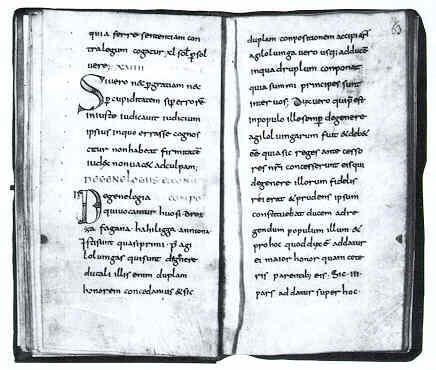 qui a ferre sententiam con
tra legum cogatur xl sol psol
vere;
Sivero nec pgratiam nec
pcupiditatem sup errore
iniuste iudicavit iudicium
ipsius inquo errasse cognos
citur non habeat firmitate
iudex non vacet ad culpam;
DEGENELOGIIS
Degenelogia
qui vocantur huosi droz
za fagana. hahiligga anniona
Isti sunt quasi primi p agi
lolvingas qui sunt degenere
ducali illis enim duplam
honorem concedamus & sic
63
duplam conpositionem accipiant
agilolvinga vero usq; adducem
inquadruplum componat
quia summi principes sunt
inter vos; Dux vero qui preest
inpopulo ille semp degenere
agilolvingarum fuit & deb&
ee quia sic reges ante cesso
res nri concesserunt eis qui
degenere illorum fidelis
rei erat & prudens ipsum
constituebat ducem adre
gendum populum illum &
pro hoc quod dux e addatur
ei maior honor quam cete
ris parentib; eis. Sic. III
pars addatur super hoc.